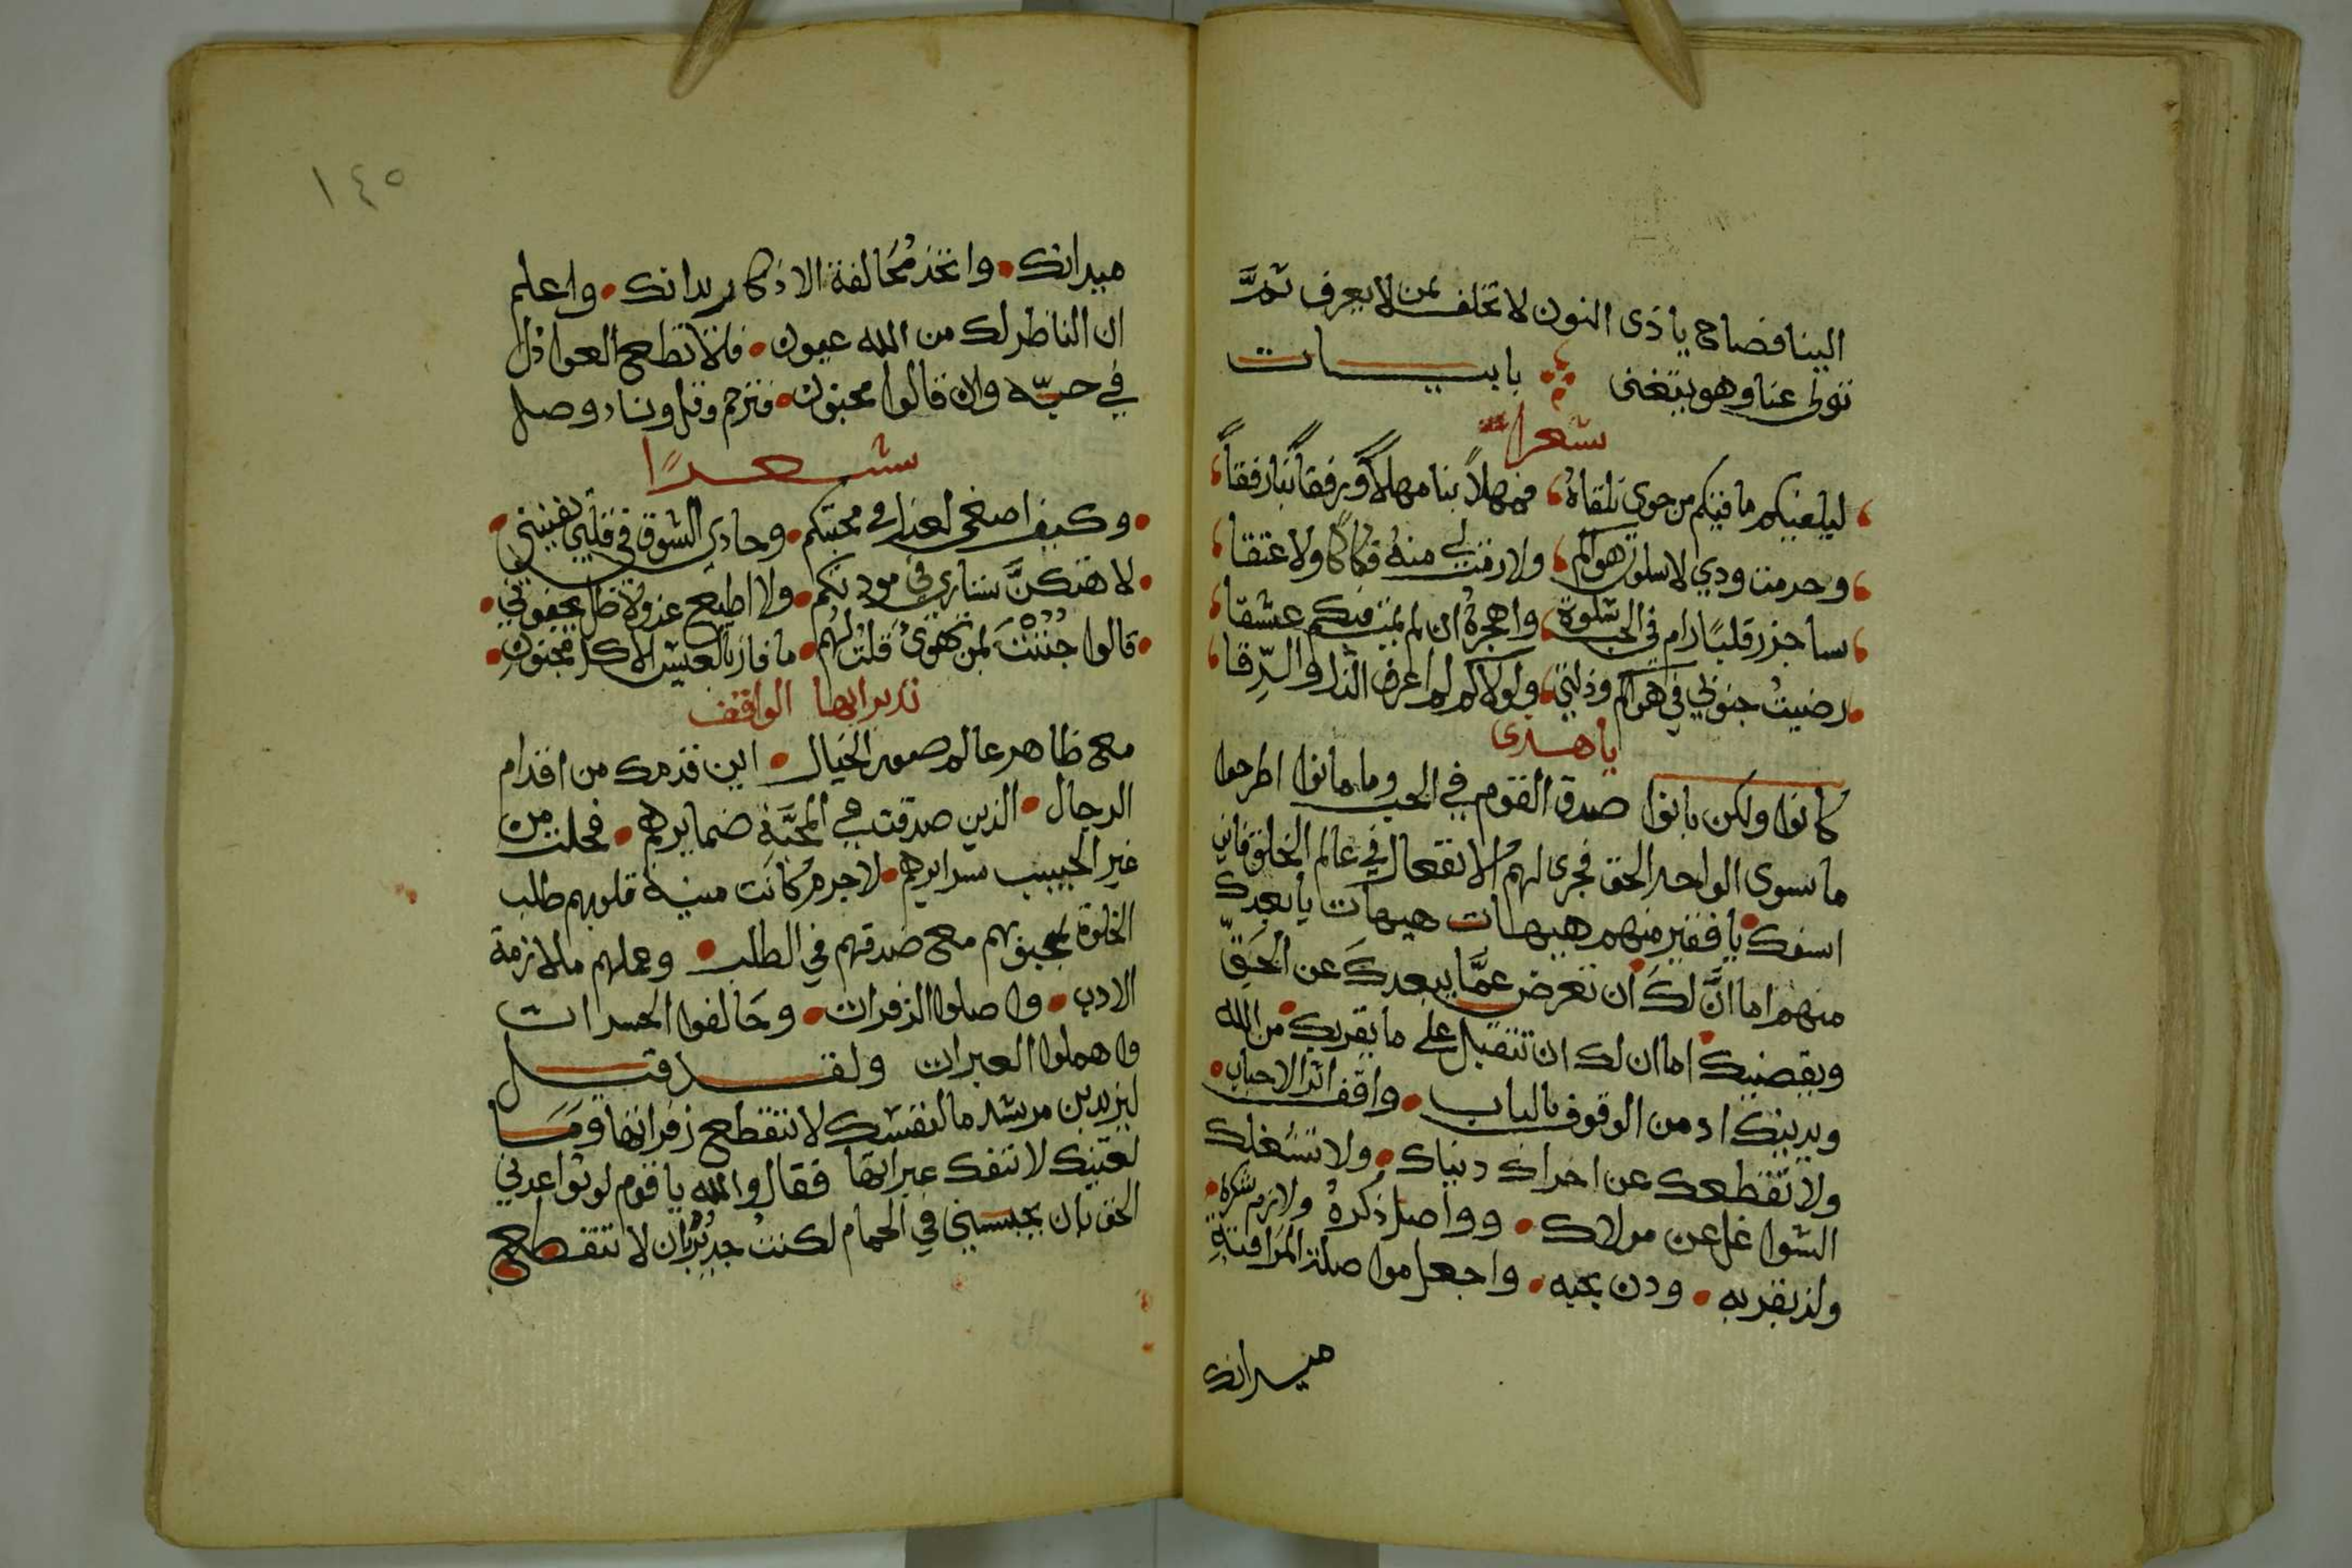 الينا فصاح يا ذى النون لا تخلف بمن لا يعرف ثمَّ
تولى عنا وهو يتغنى بابيـــات
شعرا
ليليفيكم ما فيكم من جوى تلقاهُ فمهلاً بنا مهلاً ورفقاً بنا رفقاً
وحرمت ودي لا سلوت هواكم ولا رمت لي منهُ فكاكا ولا عتقا
ساجزر قلبًا رام في الحب سلوة واهجرهُ ان لم يمت فيكم عشقا
رضيتُ جنوني في هواكم وذلتي ولولاكم لم اعرف الذل والرِّقا
يا هــذى
كانوا ولكن بانوا صدق القوم في الحب وما مانوا اطرحوا
ما سوى الواحد الحق فجرى لهمُ الانفعال في عالم الخلق فاين
اسفك يا فقير منهم هيهات هيهات يا بعدك
منهم اما انَّ لكَ ان تعرض عمَّا يبعدكَ عن الحَقّ
ويقصيك اما ان لك ان تتقبل على ما يقربك من الله
ويدينك ادمن الوقوف بالباب واقف اثر الاحباب
ولا تقطعك عن اخراك دنياك ولا تشغلك
الشواغل عن مولاك وواصل ذكرهُ ولازم شكره
ولذ بقربه ودن بحبه واجعل مواصلة المراقبة
ميدانك
١٤٥
ميدانك واتخذ مُحَالفة الاذكار يدانك واعلم
ان الناظر لك من الله عيون فلا تطع العواذل
في حبّه وان قالوا مجنون فترحم وقل وناد وصل
شــعــرًا
وكيف اصغى لعذل في محبتكم وحادي الشوق في قلبي يغنيني
لاهتكنَّ ستاري في مودتكم ولا اطيع عذولا ظل يجفوني
قالوا جُنِنْتَ بمن تهوى قلتُ لهم ما فاز بالعيش الا كل مجنونِ
تدبر ايها الواقف
مع ظاهر عالم صور الخيال اين قدمك من اقدام
الرجال الذين صدقت في المحبَّة ضمايرهم فخلت من
غير الحبيب سرايرهم لا جرم كانت منية قلوبهم طلب
الخلوة بمحبوبهم مع صدقهم في الطلب وعملهم ملازمة
الادب واصلوا الزفرات وحَالفوا الحسرات
واهملوا العبرات ولقــد قيــل
ليزيد بن مرشد ما لنفسك لا تنقطع زفراتها وَمَــا
لعينك لا تنفك عبراتها فقال والله يا قوم لو تواعدني
الحق بان يحبسني في الحمام لكنتُ جديرًا بان لا تنقطع